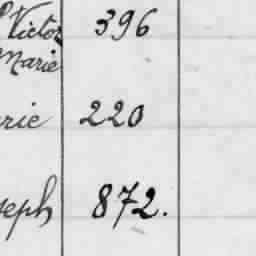 Victor 396
Marie
rie 220
seph 872.